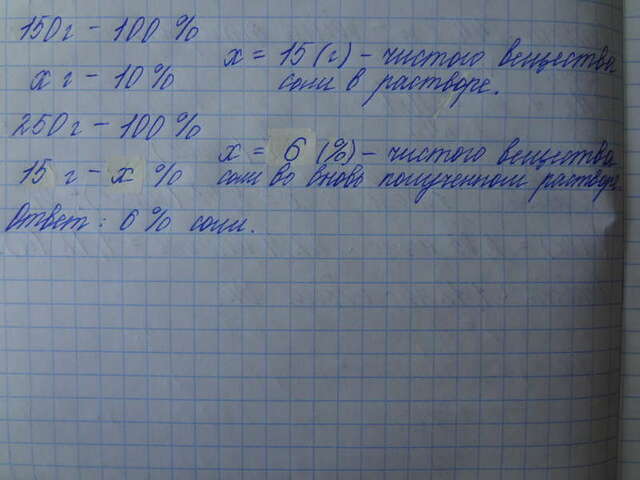 150 г - 100 %
х г - 10 %
х = 15 (г) - чистого вещества
соли в растворе.
250 г - 100 %
15 г - х %
х = 6 (%) - чистого вещества
соли во вновь полученном растворе.
Ответ: 6 % соли.